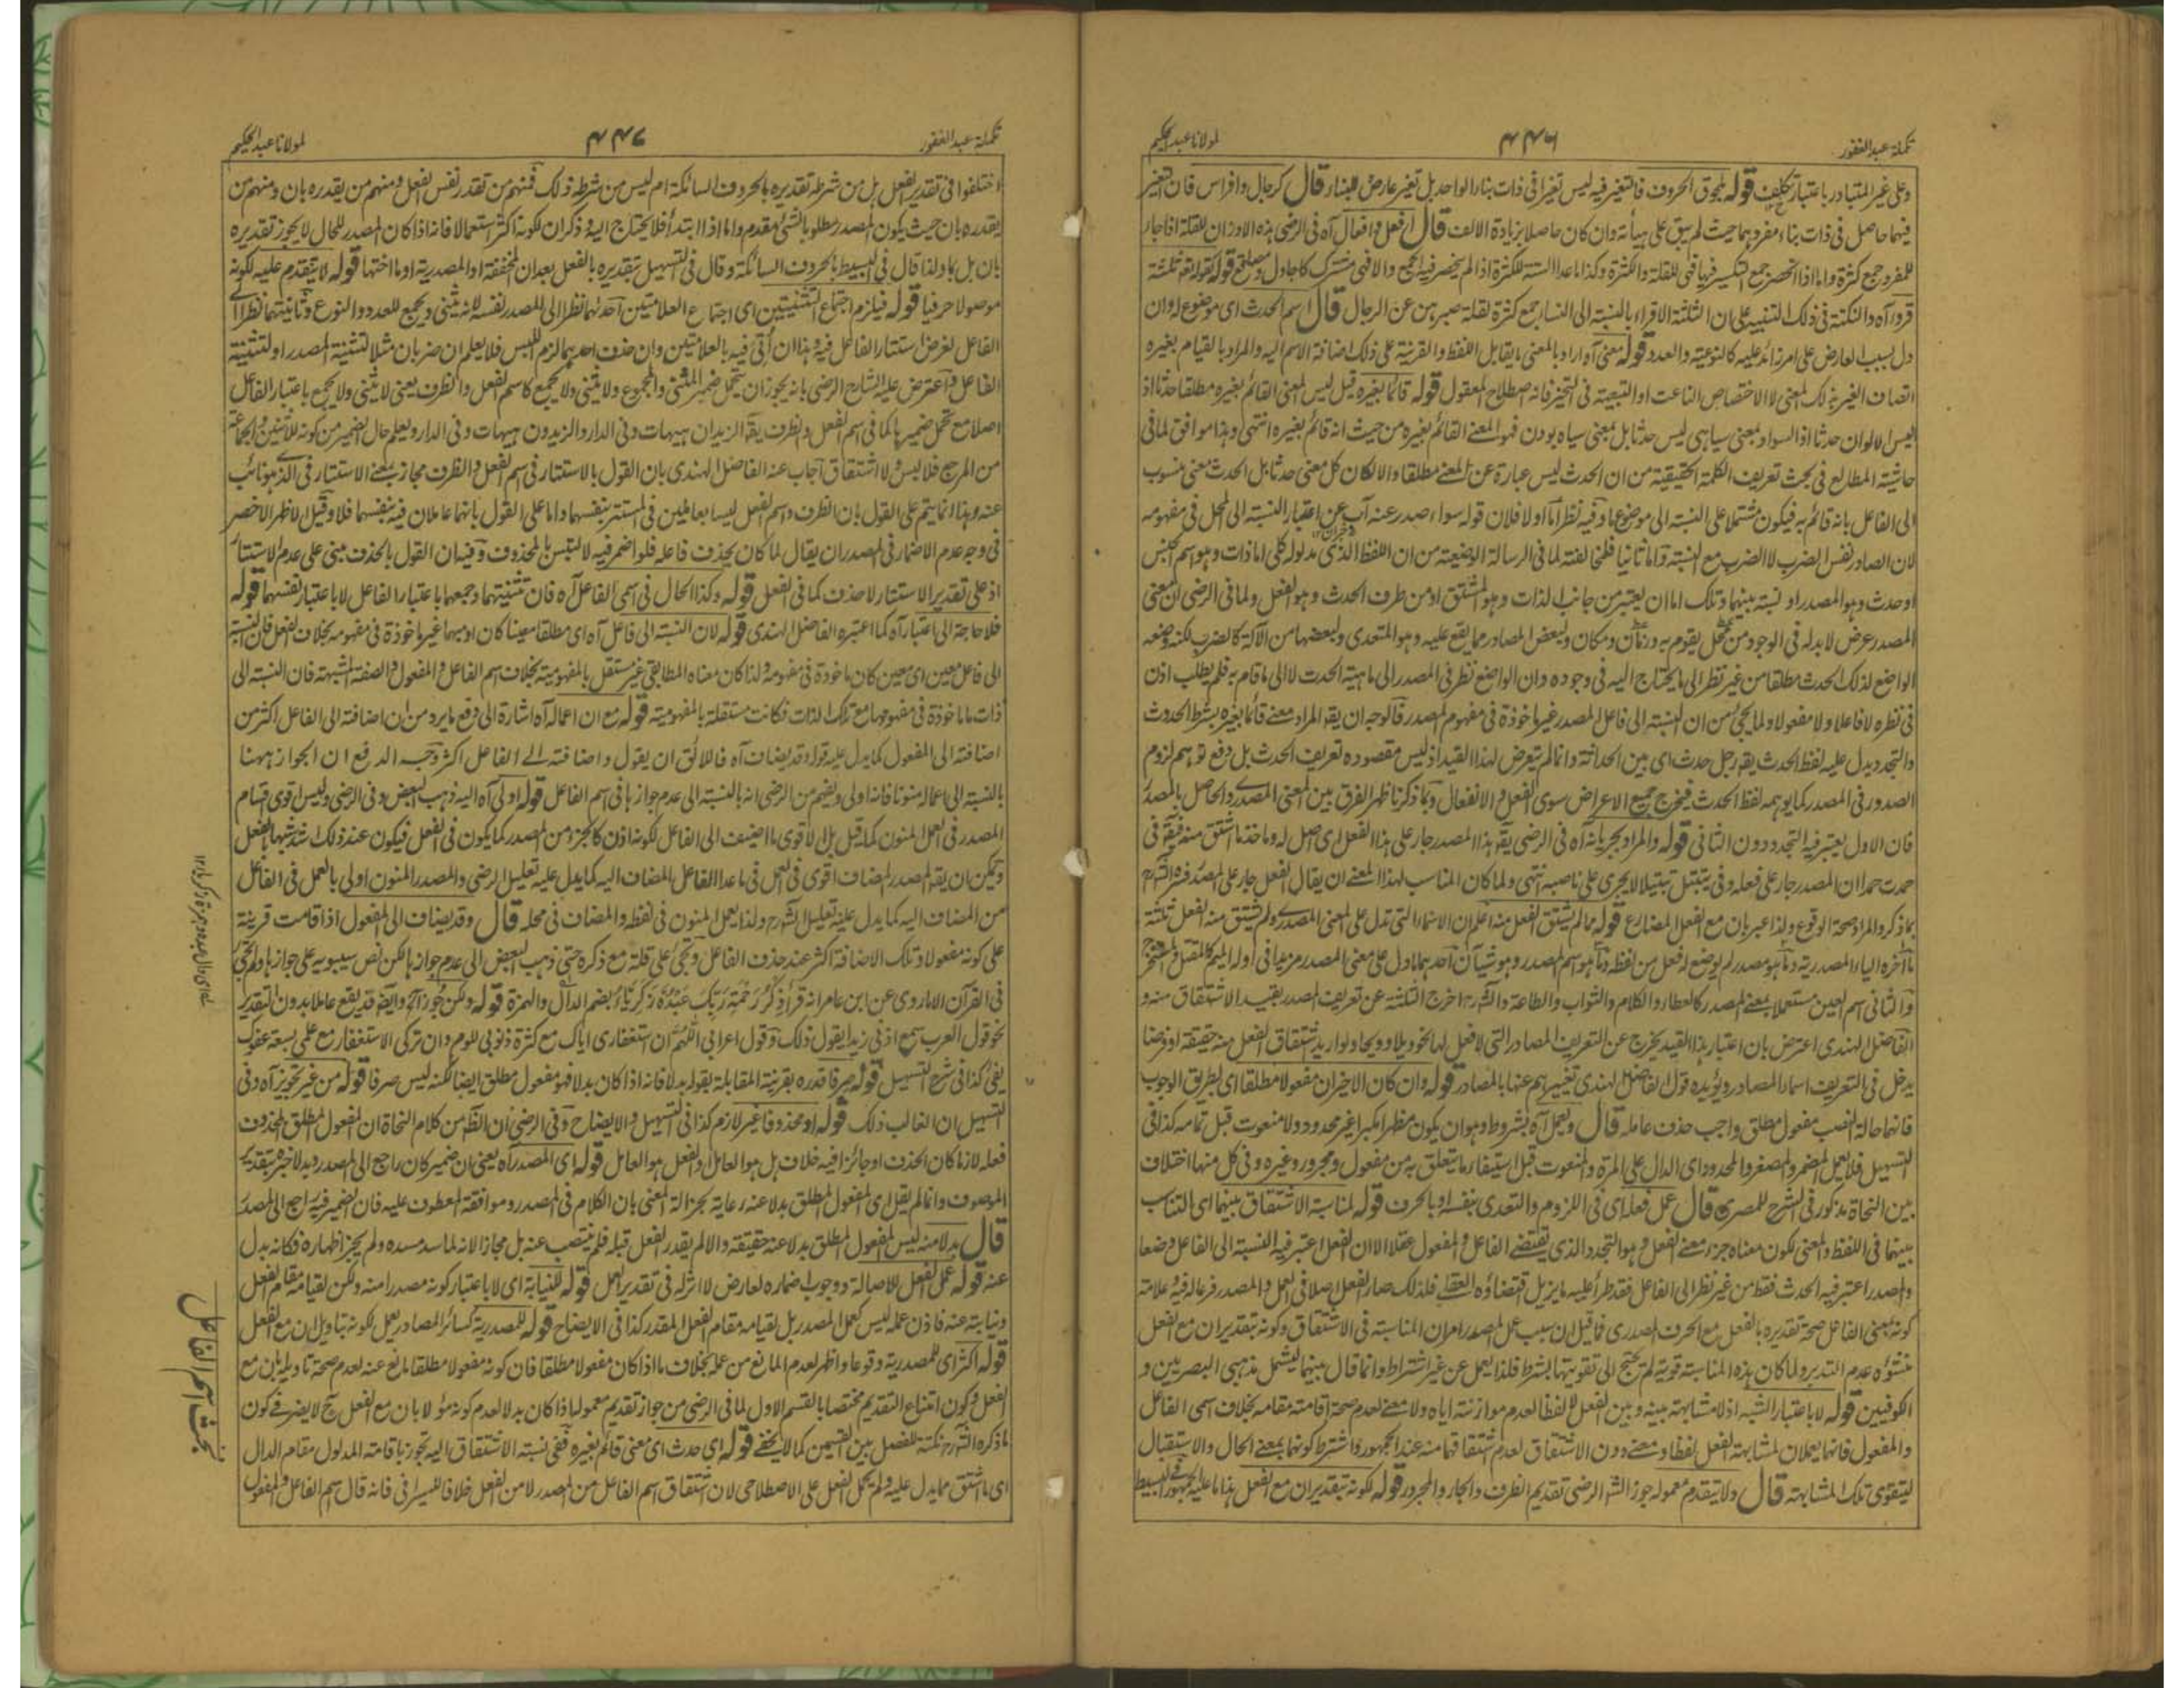 تكملة عبد الغفور
٤٤٦
لمولانا عبد الحكيم
وعلى غير المتبادر باعتبار تكلف قوله بلحوق الحروف فالتغير فيه ليس تغيرا فى ذات بناء الواحد بل تغير عارض للبناء قال كرجال وافراس فان التغير
فيهما حاصل فى ذات بناء مفردهما حيث لم يبق على هيأته وان كان حاصلا بزيادة الالف قال افعل وافعال آه فى الرضى هذه الاوزان للقلة اذا جاء
للمفرد جمع كثرة واما اذا انحصر جمع التكسير فيها فهى للقلة والكثرة وكذا ما عدا الستة للكثرة اذا لم ينحصر فيه الجمع والا فهى مشترك كاجادل ومصانع قوله كقوله تعالى ثلثة
قروء آه والنكتة فى ذلك التنبيه على ان الثلثة الاقراء بالنسبة الى النساء جمع كثرة لقلة صبرهن عن الرجال قال اسم الحدث اى موضوع له وان
دل بسبب العارض على امر زائد عليه كالنوعية والعدد قوله معنى آه اراد بالمعنى ما يقابل اللفظ والقرينة على ذلك اضافة الاسم اليه والمراد بالقيام بغيره
اتصاف الغير بذلك المعنى لا الاختصاص الناعت او التبعية فى التحيز فانه اصطلاح المعقول قوله قائما بغيره قيل ليس المعنى القائم بغيره مطلقا حدثا اذ
ليس الالوان حدثا اذ السواد بمعنى سياهى ليس حدثا بل بمعنى سياه بودن فهو المعنى القائم بغيره من حيث انه قائم بغيره انتهى وهذا موافق لما فى
حاشية المطالع فى بحث تعريف الكلمة الحقيقية من ان الحدث ليس عبارة عن المعنى مطلقا والا لكان كل معنى حدثا بل الحدث معنى منسوب
الى الفاعل بانه قائم به فيكون مشتملا على النسبة الى موضوع ما وفيه نظر اما اولا فلان قوله سواء صدر عنه آب عن اعتبار النسبة الى المحل فى مفهومه
لان الصادر نفس الضرب لا الضرب مع النسبة واما ثانيا فلمخالفته لما فى الرسالة الوضعية من ان اللفظ الذى مدلوله كلى اما ذات وهو اسم الجنس
او حدث وهو المصدر او نسبة بينهما وتلك اما ان يعتبر من جانب الذات وهو المشتق او من طرف الحدث وهو الفعل ولما فى الرضى ان المعنى
المصدر عرض لا بد له فى الوجود من محل يقوم به وزمان ومكان ولبعض المصادر مما يقع عليه وهو المتعدى ولبعضها من الآلة كالضرب لكنه وضعه
الواضع لذلك الحدث مطلقا من غير نظر الى ما يحتاج اليه فى وجوده وان الواضع نظر فى المصدر الى ماهية الحدث لا الى ما قام به فلم يطلب اذن
فى نظره لا فاعلا ولا مفعولا ولما يجئ من ان النسبة الى فاعل المصدر غير ماخوذة فى مفهوم المصدر فالوجه ان يقال المراد معنى قائما بغيره بشرط الحدوث
والتجدد يدل عليه لفظ الحدث يقال رجل حدث اى بين الحداثة وانما لم يتعرض لهذا القيد اذ ليس مقصوده تعريف الحدث بل دفع توهم لزوم
الصدور فى المصدر كما يوهمه لفظ الحدث فيخرج جميع الاعراض سوى الفعل والانفعال وبما ذكرنا ظهر الفرق بين المعنى المصدرى والحاصل بالمصدر
فان الاول يعتبر فيه التجدد دون الثانى قوله والمراد بجريانه آه فى الرضى يقال هذا المصدر جار على هذا الفعل اى اصل له وماخذ ما اشتق منه فيقال فى
حمدت حمدا ان المصدر جار على فعله وفى تبتل تبتيلا لا يجرى على ناصبه انتهى ولما كان المناسب لهذا المعنى ان يقال الفعل جار على المصدر فسر الشارح
بما ذكر والمراد صحة الوقوع ولذا عبر بان مع الفعل المضارع قوله مما لم يشتق الفعل منه اعلم ان الاسماء التى تدل على المعنى المصدرى ولم يشتق منه الفعل ثلثة
ما آخره الياء المصدرية وما هو مصدر لم يوضع له فعل من لفظه وما هو اسم المصدر وهو شيآن احدهما ما دل على معنى المصدر مزيدا فى اوله الميم كالمقتل والمستخرج
والثانى اسم العين مستعملا بمعنى المصدر كالعطاء والكلام والثواب والطاعة والشارح اخرج الثلثة عن تعريف المصدر بقيد الاشتقاق منه و
الفاضل الهندى اعترض بان اعتبار هذا القيد يخرج عن التعريف المصادر التى لا فعل لها نحو ويلا وويحا ولو اريد اشتقاق الفعل منه حقيقة او فرضا
يدخل فى التعريف اسماء المصادر ويؤيده قول الفاضل الهندى تغييرهم عنها بالمصادر قوله وان كان الاخيران مفعولا مطلقا اى بطريق الوجوب
فانهما حالة النصب مفعول مطلق واجب حذف عامله قال ويعمل آه بشروط وهو ان يكون مظهرا مكبرا غير محدود ولا منعوت قبل تمامه كذا فى
التسهيل فلا يعمل المضمر والمصغر والمحدود اى الدال على المرة والمنعوت قبل استيفاء ما يتعلق به من مفعول ومجرور وغيره وفى كل منها اختلاف
بين النحاة مذكور فى الشرح للمصرى قال عمل فعله اى فى اللزوم والتعدى بنفسه او بالحرف قوله لمناسبة الاشتقاق بينهما اى التناسب
بينهما فى اللفظ والمعنى لكون معناه جزء معنى الفعل وهو التجدد الذى يقتضى الفاعل والمفعول عقلا الا ان الفعل اعتبر فيه النسبة الى الفاعل وضعا
والمصدر اعتبر فيه الحدث فقط من غير نظر الى الفاعل فقد طرأ عليه ما يزيل اقتضاؤه العقلى فلذلك صار الفعل اصلا فى العمل والمصدر فرعا له فيه وعلامة
كونه بمعنى الفاعل صحة تقديره بالفعل مع الحرف المصدرى فما قيل ان سبب عمل المصدر امران المناسبة فى الاشتقاق وكونه بتقدير ان مع الفعل
منشؤه عدم التدبر ولما كان هذه المناسبة قوية لم تحتج الى تقويتها بشرط فلذا يعمل عن غير اشتراط وانما قال بينهما ليشمل مذهبى البصريين و
الكوفيين قوله لا باعتبار الشبه اذ لا مشابهة بينه وبين الفعل لا لفظا لعدم موازنته اياه ولا معنى لعدم صحة اقامته مقامه بخلاف اسمى الفاعل
والمفعول فانهما يعملان لمشابهة الفعل لفظا ومعنى دون الاشتقاق لعدم اشتقاقهما منه عند الجمهور واشترط كونهما بمعنى الحال والاستقبال
ليتقوى تلك المشابهة قال ولا يتقدم معموله جوز الشارح الرضى تقديم الظرف والجار والمجرور قوله لكونه بتقدير ان مع الفعل هذا ما عليه الجمهور وفى البسيط
تكملة عبد الغفور
٤٤٧
لمولانا عبد الحكيم
اختلفوا فى تقدير الفعل بل من شرطه تقديره بالحروف السابكة ام ليس من شرطه ذلك فمنهم من تقدر نفس الفعل ومنهم من يقدره بان ومنهم من
يقدره بان حيث يكون المصدر مطلوبا لشئ مقدم واما اذا ابتدأ فلا يحتاج اليه وذكر ان لكونه اكثر استعمالا فانه اذا كان المصدر للحال لا يجوز تقديره
بان بل بما ولذا قال فى البسيط بالحروف السابكة وقال فى التسهيل بتقديره بالفعل بعد ان المخففة او المصدرية او ما اختها قوله لا يتقدم عليه لكونه
موصولا حرفيا قوله فيلزم اجتماع التثنيتين اى اجتماع العلامتين احدهما نظرا الى المصدر نفسه لانه يثنى ويجمع للعدد والنوع وثانيتهما نظرا الى
الفاعل لغرض استتار الفاعل فيه وهذا ان أُتى فيه بالعلامتين وان حذف احدهما لزم اللبس فلا يعلم ان ضربان مثلا لتثنية المصدر او لتثنية
الفاعل واعترض عليه الشارح الرضى بانه يجوز ان يتحمل ضمير المثنى والمجموع ولا يثنى ولا يجمع كاسم الفعل والظرف يعنى لا يثنى ولا يجمع باعتبار الفاعل
اصلا مع تحمل ضميرهما كما فى اسم الفعل والظرف يقال الزيدان هيهات وفى الدار والزيدون هيهات وفى الدار ويعلم حال الضمير من كونه للاثنين والجماعة
من المرجع فلا لبس ولا اشتقاق اجاب عنه الفاضل الهندى بان القول بالاستتار فى اسم الفعل والظرف مجاز بمعنى الاستتار فى الذى هو نائب
عنه وهذا انما يتم على القول بان الظرف واسم الفعل ليسا بعاملين فى المستتر بنفسهما واما على القول بانهما عاملان فيه بنفسهما فلا وقيل الاظهر الاخصر
فى وجه عدم الاضمار فى المصدر ان يقال لما كان يحذف فاعله فلو اضمر فيه لالتبس بالمحذوف وفيه ان القول بالحذف مبنى على عدم الاستتار
اذ على تقدير الاستتار لا حذف كما فى الفعل قوله وكذا الحال فى اسمى الفاعل آه فان تثنيتهما وجمعهما باعتبار الفاعل لا باعتبار نفسهما قوله
فلا حاجة الى اعتباره آه كما اعتبره الفاضل الهندى قوله لان النسبة الى فاعل آه اى مطلقا معينا كان او مبهما غير ماخوذة فى مفهومه بخلاف الفعل فان النسبة
الى فاعل معين اى معين كان ماخوذة فى مفهومه ولذا كان معناه المطابقى غير مستقل بالمفهومية بخلاف اسم الفاعل والمفعول والصفة المشبهة فان النسبة الى
ذات ما ماخوذة فى مفهومها مع تلك الذات فكانت مستقلة بالمفهومية قوله مع ان اعماله آه اشارة الى دفع ما يرد من ان اضافته الى الفاعل اكثر من
اضافته الى المفعول كما يدل عليه قوله وقد يضاف آه فاللائق ان يقول واضافته الى الفاعل اكثر وجه الدفع ان الجواز ههنا
بالنسبة الى اعماله منونا فانه اولى ويفهم من الرضى انه بالنسبة الى عدم جوازها فى اسم الفاعل قوله اولى آه اليه ذهب البعض وفى الرضى وليس اقوى اقسام
المصدر فى العمل المنون كما قيل بل الاقوى ما اضيف الى الفاعل لكونه اذن كالجزء من المصدر كما يكون فى الفعل فيكون عند ذلك اشد شبها بالفعل
ويمكن ان يقال المصدر المضاف اقوى فى العمل فى ما عدا الفاعل المضاف اليه كما يدل عليه تعليل الرضى والمصدر المنون اولى بالعمل فى الفاعل
من المضاف اليه كما يدل عليه تعليل الشارح ولذا يعمل المنون فى لفظه والمضاف فى محله قال وقد يضاف الى المفعول اذا قامت قرينة
على كونه مفعولا وتلك الاضافة اكثر عند حذف الفاعل وتجئ على قلة مع ذكره حتى ذهب البعض الى عدم جوازها لكن نص سيبويه على جوازها ولم تجئ
فى القرآن الا ما روى عن ابن عامر انه قرأ ذِكْرُ رَحْمَةِ رَبِّكَ عَبْدُهُ زَكَرِيَّاءُ بضم الدال والهمزة قوله ولكن جوزا آه وايضا قد يقع عاملا بدون التقدير
نحو قول العرب سمع اذنى زيدا يقول ذلك وقول اعرابى اللهم ان استغفارى اياك مع كثرة ذنوبى للوم وان تركى الاستغفار مع علمى بسعة عفوك
لغى كذا فى شرح التسهيل قوله صرفا قدره بقرينة المقابلة بقوله بدلا فانه اذا كان بدلا فهو مفعول مطلق ايضا لكنه ليس صرفا قوله من غير تجويز آه وفى
التسهيل ان الغالب ذلك قوله او محذوفا غير لازم كذا فى التسهيل والايضاح وفى الرضى ان الظاهر من كلام النحاة ان المفعول المطلق المحذوف
فعله لازما كان الحذف او جائزا فيه خلاف هل هو العامل او الفعل هو العامل قوله اى المصدر آه يعنى ان ضمير كان راجع الى المصدر وبدلا خبره بتقدير
الموصوف وانما لم يقل اى المفعول المطلق بدلا عنه رعاية لجزالة المعنى بان الكلام فى المصدر وموافقة المعطوف عليه فان الضمير فيه راجع الى المصدر
قال بدلا منه ليس المفعول المطلق بدلا عنه حقيقة والا لم يقدر الفعل قبله فلم ينتصب عنه بل مجازا لانه لما سد مسده ولم يجز اظهاره فكانه بدل
عنه قوله عمل الفعل للاصالة ووجوب اضماره لعارض لا اثر له فى تقدير العمل قوله للنيابة اى لا باعتبار كونه مصدرا منه ولكن لقيامه مقام الفعل
ونيابته عنه فاذن عمله ليس كعمل المصدر بل لقيامه مقام الفعل المقدر كذا فى الايضاح قوله للمصدرية كسائر المصادر يعمل لكونه بتاويل ان مع الفعل
قوله اكثر اى للمصدرية وقوعا واظهر لعدم المانع من عمله بخلاف ما اذا كان مفعولا مطلقا فان كونه مفعولا مطلقا مانع عنه لعدم صحة تاويله بان مع
الفعل وكون امتناع التقديم مختصا بالقسم الاول لما فى الرضى من جواز تقديم معمولها اذا كان بدلا لعدم كونه مؤولا بان مع الفعل لا يضر فى كون
ما ذكره الشارح نكتة للفصل بين القسمين كما لا يخفى قوله اى حدث اى معنى قائم بغيره ففى نسبة الاشتقاق اليه تجوز باقامة المدلول مقام الدال
اى ما اشتق مما يدل عليه ولم يحمل الفعل على الاصطلاحى لان اشتقاق اسم الفاعل من المصدر لا من الفعل خلافا للسيرافى فانه قال اسم الفاعل والمفعول
له اى دال عبده وهمزة زكرياء ١٢
بحث اسم الفاعل